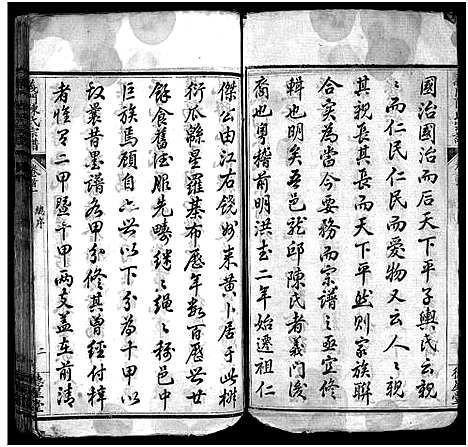 國治國治而后天下平子輿氏云親
〻而仁民仁民而愛物又云人〻親
其親長其長而天下平然則家族聯
合實為當今要務而宗譜之亟宜修
輯也明矣吾邑龍邱陳氏者義門後
裔也粵稽前明洪武二年始遷祖仁
傑公由江右饒州來黃卜居于此椒
衍瓜緜星羅基布歷年數百歷世廿
餘食舊德服先疇綿〻繩〻稱邑中
巨族焉顧自六世以下分為十甲以
叙叢昔墨譜各甲分修其曾經付梓
者惟第二甲暨十甲兩支蓋在前清
義門陳氏宗譜
總序
二
德星堂